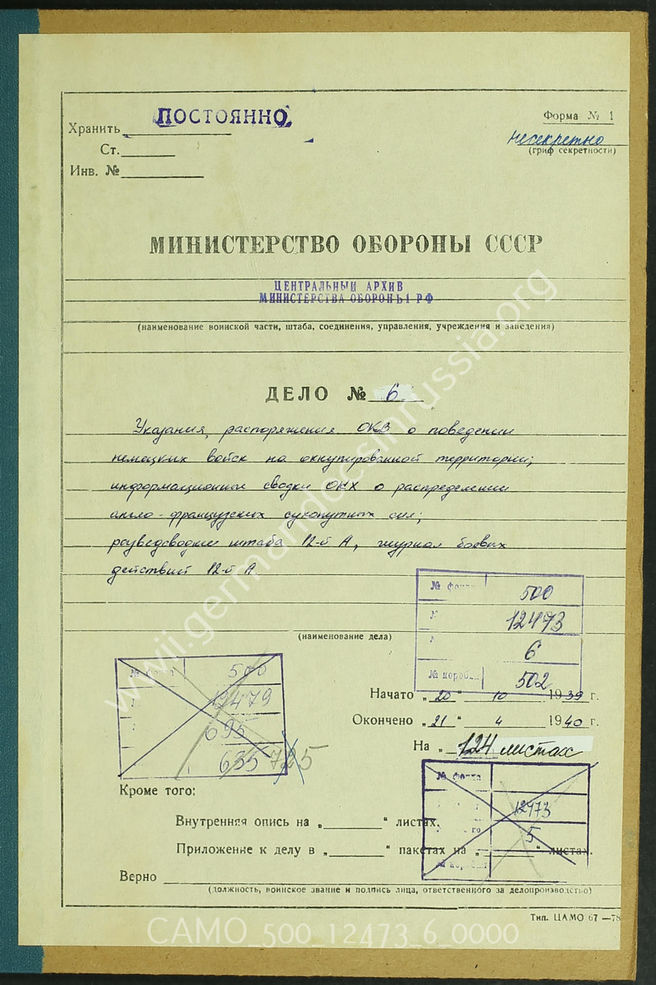 Хранить ПОСТОЯННО
Форма № 1
Ст.
несекретно
(гриф секретности)
Инв. №
МИНИСТЕРСТВО ОБОРОНЫ СССР
ЦЕНТРАЛЬНЫЙ АРХИВ
МИНИСТЕРСТВА ОБОРОНЫ РФ
(наименование воинской части, штаба, соединения, управления, учреждения и заведения)
ДЕЛО № 6
Указания, распоряжения ОКВ о поведении
немецких войск на оккупированной территории;
информационные сводки ОКХ о распределении
англо-французских сухопутных сил;
разведсводки штаба 12-й А, журнал боевых
действий 12-й А
(наименование дела)
№ фонда 500
12473
6
№ коробки 502
№ фонда 500
12479
695
635 725
Начато „20" 10 1939 г.
Окончено „21" 4 1940 г.
На „124 листах
№ фонда
12473
5
Кроме того:
Внутренняя опись на „ " листах.
Приложение к делу в „ " пакетах на „ " листах.
Верно
(должность, воинское звание и подпись лица, ответственного за делопроизводство)
Тип. ЦАМО 67—78
www.germandocsinrussia.org
CAMO_500_12473_6_0000